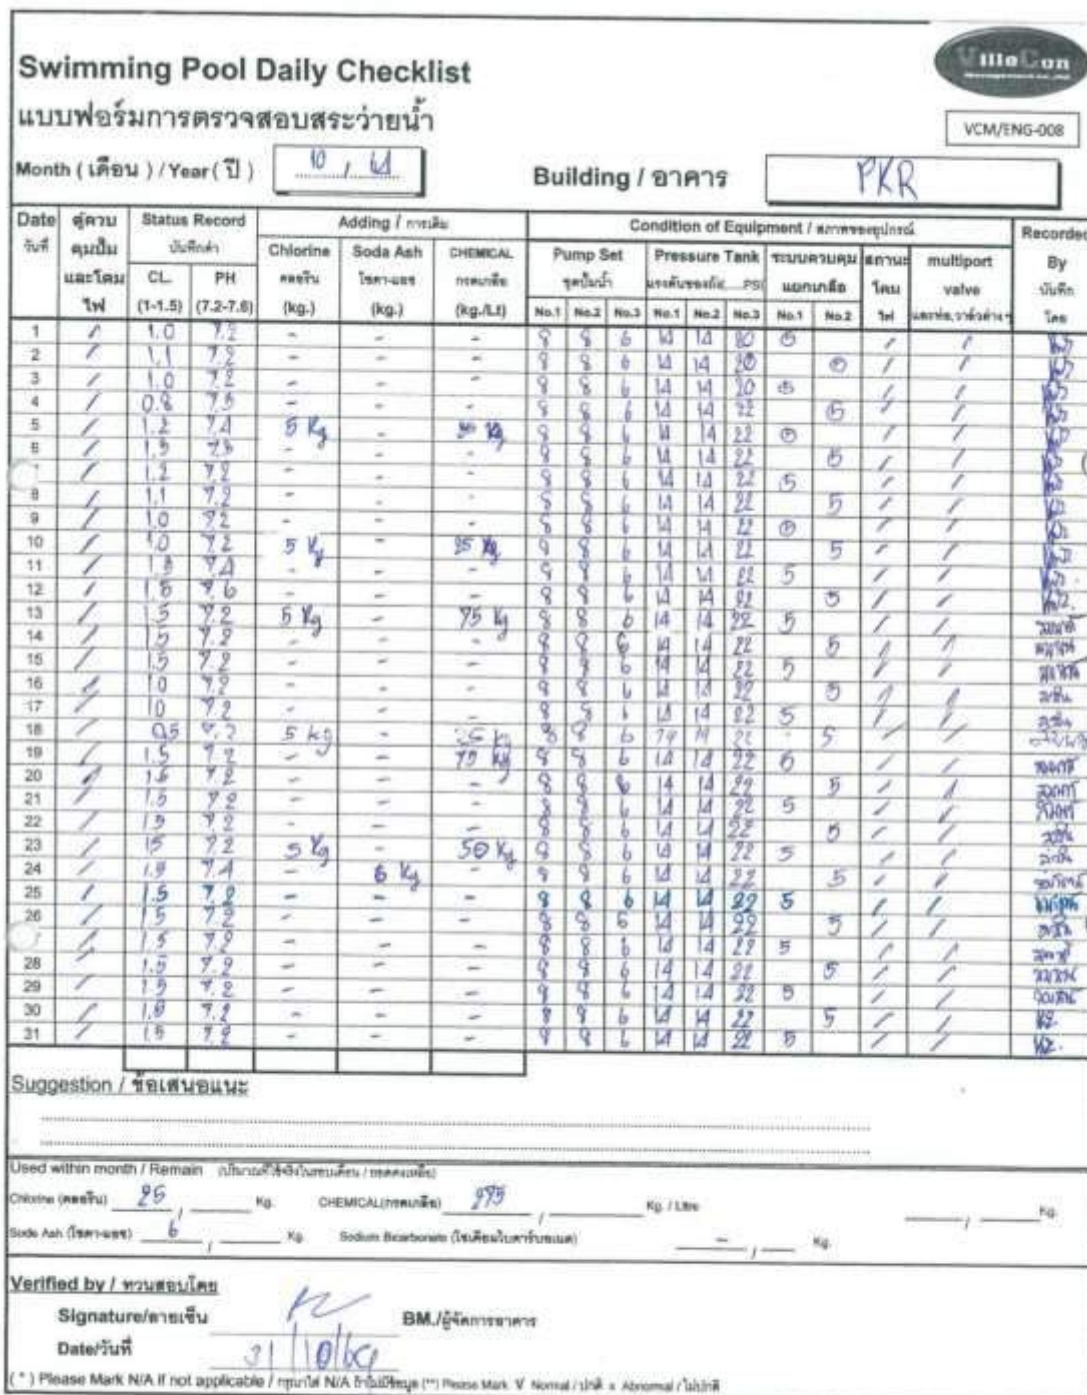 Swimming Pool Daily Checklist
แบบฟอร์มการตรวจสอบสระว่ายน้ำ
VCM/ENG-008
Month ( เดือน ) / Year ( ปี ) 10 / 61
Building / อาคาร PKR
Date วันที่ ตู้ควบคุมปั๊มและโคมไฟ Status Record บันทึกค่า Adding / การเติม Condition of Equipment / สภาพของอุปกรณ์ Recorded By บันทึกโดย
Chlorine คลอรีน (kg.) Soda Ash โซดา-แอช (kg.) CHEMICAL กรดเกลือ (kg./Lt) Pump Set ชุดปั๊มน้ำ Pressure Tank แรงดันของถัง.....PSI ระบบควบคุมแยกเกลือ สถานะโคมไฟ multiport valve และท่อ,วาล์วต่างๆ
CL. (1-1.5) PH (7.2-7.6) No.1 No.2 No.3 No.1 No.2 No.3 No.1 No.2
1 / 1.0 7.2 - - - 8 8 6 14 14 20 5 / /
2 / 1.1 7.2 - - - 8 8 6 14 14 20 5 / /
3 / 1.0 7.2 - - - 8 8 6 14 14 20 5 / /
4 / 0.8 7.5 - - - 8 8 6 14 14 22 5 / /
5 / 1.2 7.4 5 Kg - 8 8 6 14 14 22 5 / /
6 / 1.5 7.5 - - - 8 8 6 14 14 22 5 / /
/ 1.2 7.2 - - - 8 8 6 14 14 22 5 / /
8 / 1.1 7.2 - - - 8 8 6 14 14 22 5 / /
9 / 1.0 7.2 - - - 8 8 6 14 14 22 5 / /
10 / 1.0 7.2 5 Kg - 25 Kg 8 8 6 14 14 22 5 / /
11 / 1.3 7.4 - - - 8 8 6 14 14 22 5 / /
12 / 1.5 7.6 - - - 8 8 6 14 14 22 5 / /
13 / 1.5 7.2 5 Kg - 75 Kg 8 8 6 14 14 22 5 / /
14 / 1.5 7.2 - - - 8 8 6 14 14 22 5 / /
15 / 1.5 7.2 - - - 8 8 6 14 14 22 5 / /
16 / 1.0 7.2 - - - 8 8 6 14 14 22 5 / /
17 / 1.0 7.2 - - - 8 8 6 14 14 22 5 / /
18 / 0.5 7.2 5 kg - 25 kg 8 8 6 14 14 22 5 / /
19 / 1.5 7.2 - - 75 Kg 8 8 6 14 14 22 5 / /
20 / 1.5 7.2 - - - 8 8 6 14 14 22 5 / /
21 / 1.5 7.2 - - - 8 8 6 14 14 22 5 / /
22 / 1.5 7.2 - - - 8 8 6 14 14 22 5 / /
23 / 1.5 7.2 5 Kg - 50 Kg 8 8 6 14 14 22 5 / /
24 / 1.5 7.4 - 6 Kg - 8 8 6 14 14 22 5 / /
25 / 1.5 7.2 - - - 8 8 6 14 14 22 5 / /
26 / 1.5 7.2 - - - 8 8 6 14 14 22 5 / /
/ 1.5 7.2 - - - 8 8 6 14 14 22 5 / /
28 / 1.5 7.2 - - - 8 8 6 14 14 22 5 / /
29 / 1.5 7.2 - - - 8 8 6 14 14 22 5 / /
30 / 1.5 7.2 - - - 8 8 6 14 14 22 5 / /
31 / 1.5 7.2 - - - 8 8 6 14 14 22 5 / /
Suggestion / ข้อเสนอแนะ
Used within month / Remain (ปริมาณที่ใช้จริงในรอบเดือน / ยอดคงเหลือ)
Chlorine (คลอรีน) 25 / Kg. CHEMICAL(กรดเกลือ) 275 / Kg. / Litre / Kg.
Soda Ash (โซดา-แอช) 6 / Kg. Sodium Bicarbonate (โซเดียมไบคาร์บอเนต) - / Kg.
Verified by / ทวนสอบโดย
Signature/ลายเซ็น BM./ผู้จัดการอาคาร
Date/วันที่ 31/10/61
( * ) Please Mark N/A if not applicable / กรุณาใส่ N/A ถ้าไม่มีข้อมูล (**) Please Mark V Normal / ปกติ x Abnormal / ไม่ปกติ